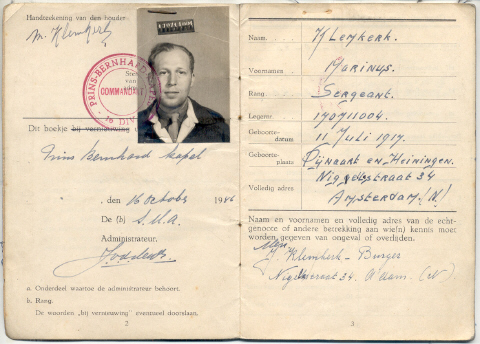 Handteekening van den houder:
M. Klemkerk
PRINS-BERNHARD
COMMANDANT
Dit boekje bij vernieuwing
Prins Bernhard Kapel
, den 16 October 1946
De (b) S.M.A.
Administrateur.
a. Onderdeel waartoe de administrateur behoort.
b. Rang.
De woorden „bij vernieuwing” eventueel doorslaan.
2
Naam. Klemkerk.
Voornamen Marinus.
Rang. Sergeant.
Legernr. 170711004.
Geboorte-
datum 11 Juli 1917.
Geboorte-
plaats Fijnaart en Heiningen.
Volledig adres
Amsterdam (N)
Naam en voornamen en volledig adres van de echt-
genoote of andere betrekking aan wie(n) kennis moet
worden gegeven van ongeval of overlijden.
Mevr.
J. Klemkerk - Burger
34. A'dam. (N)
3